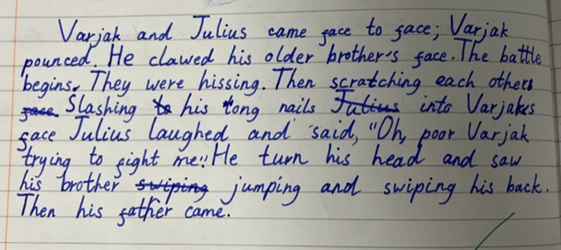 Varjak and Julius came face to face; Varjak
pounced. He clawed his older brother's face. The battle
begins. They were hissing. Then scratching each others
face. Slashing to his long nails Julius into Varjaks
face Julius laughed and said, "Oh, poor Varjak
trying to fight me". He turn his head and saw
his brother swiping jumping and swiping his back.
Then his father came.